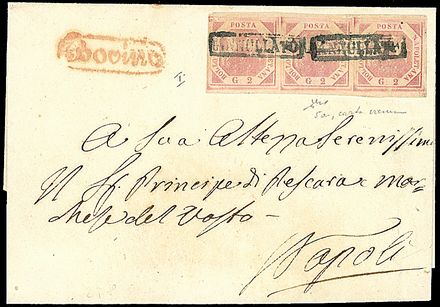 Bovino
POSTA POSTA POSTA
ANNULLATO ANNULLATO
G 2 G 2 G 2
I
5a, carta crema
A Sua Altezza Serenissima
Il Sig. Principe di Pescara e Mar-
chese del Vasto
Napoli